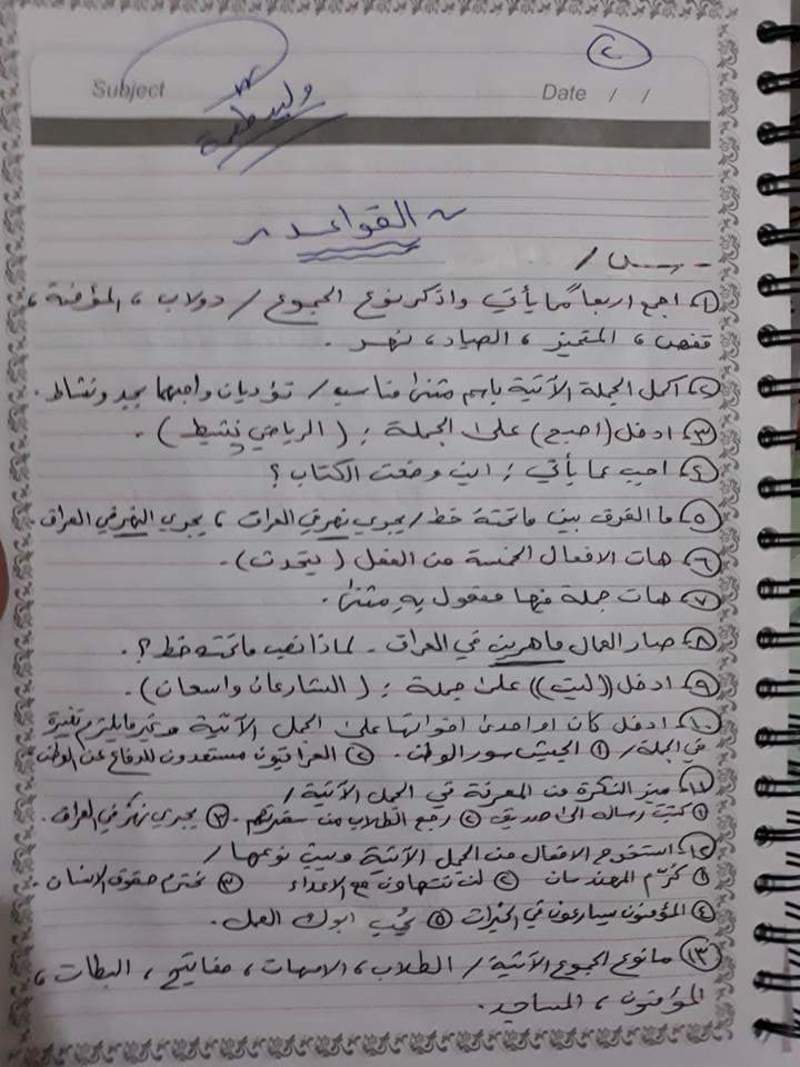 ٢
Subject
Date / /
وليد طعمة
~ القواعد ~
س /
١- اجمع اربعاً مما يأتي واذكر نوع الجموع / دولاب ، المؤمنة ،
قفص ، المتميز ، الصياد ، نهر .
٢- اكمل الجملة الآتية باسم مثنى مناسب / تؤديان واجبهما بجد ونشاط .
٣- ادخل (اصبح) على الجملة : ( الرياضي نشيط ) .
٤- اجب عما يأتي : اين وضعت الكتاب ؟
٥- ما الفرق بين ما تحته خط / يجري نهر في العراق ، يجري النهر في العراق .
٦- هات الافعال الخمسة من الفعل ( يتحدث ) .
٧- هات جملة فيها مفعول به مثنى .
٨- صار العمال ماهرين في العراق . لماذا نصب ما تحته خط ؟ .
٩- ادخل ((ليت)) على جملة : ( الشارعان واسعان ) .
١٠- ادخل كان او احدى اخواتها على الجمل الآتية وغير ما يلزم تغييره
في الجملة / ١ الجيش سور الوطن . ٢ العراقيون مستعدون للدفاع عن الوطن
١١- ميز النكرة من المعرفة في الجمل الآتية /
١ كتبت رسالة الى صديقي ٢ رجع الطلاب من سفرتهم . ٣ يجري نهر في العراق .
١٢- استخرج الافعال من الجمل الآتية وبين نوعها /
١ كُرّم المهندسان ٢ لن نتهاون مع الاعداء ٣ نحترم حقوق الانسان .
٤ المؤمنون يسارعون في الخيرات ٥ يُحب ابوك العمل .
١٣- ما نوع الجموع الآتية / الطلاب ، الامهات ، مفاتيح ، البطات ،
المؤمنون ، المساجد .